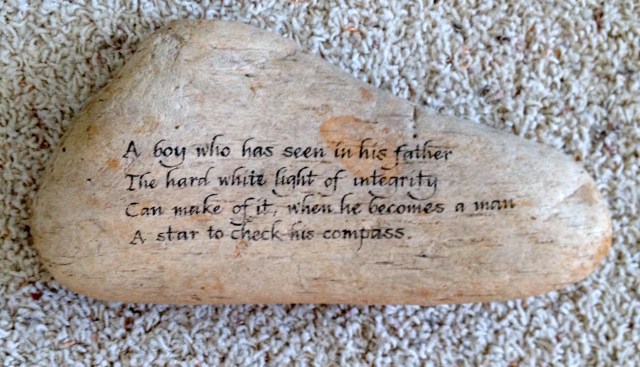 A boy who has seen in his father
The hard white light of integrity
Can make of it, when he becomes a man
A star to check his compass.